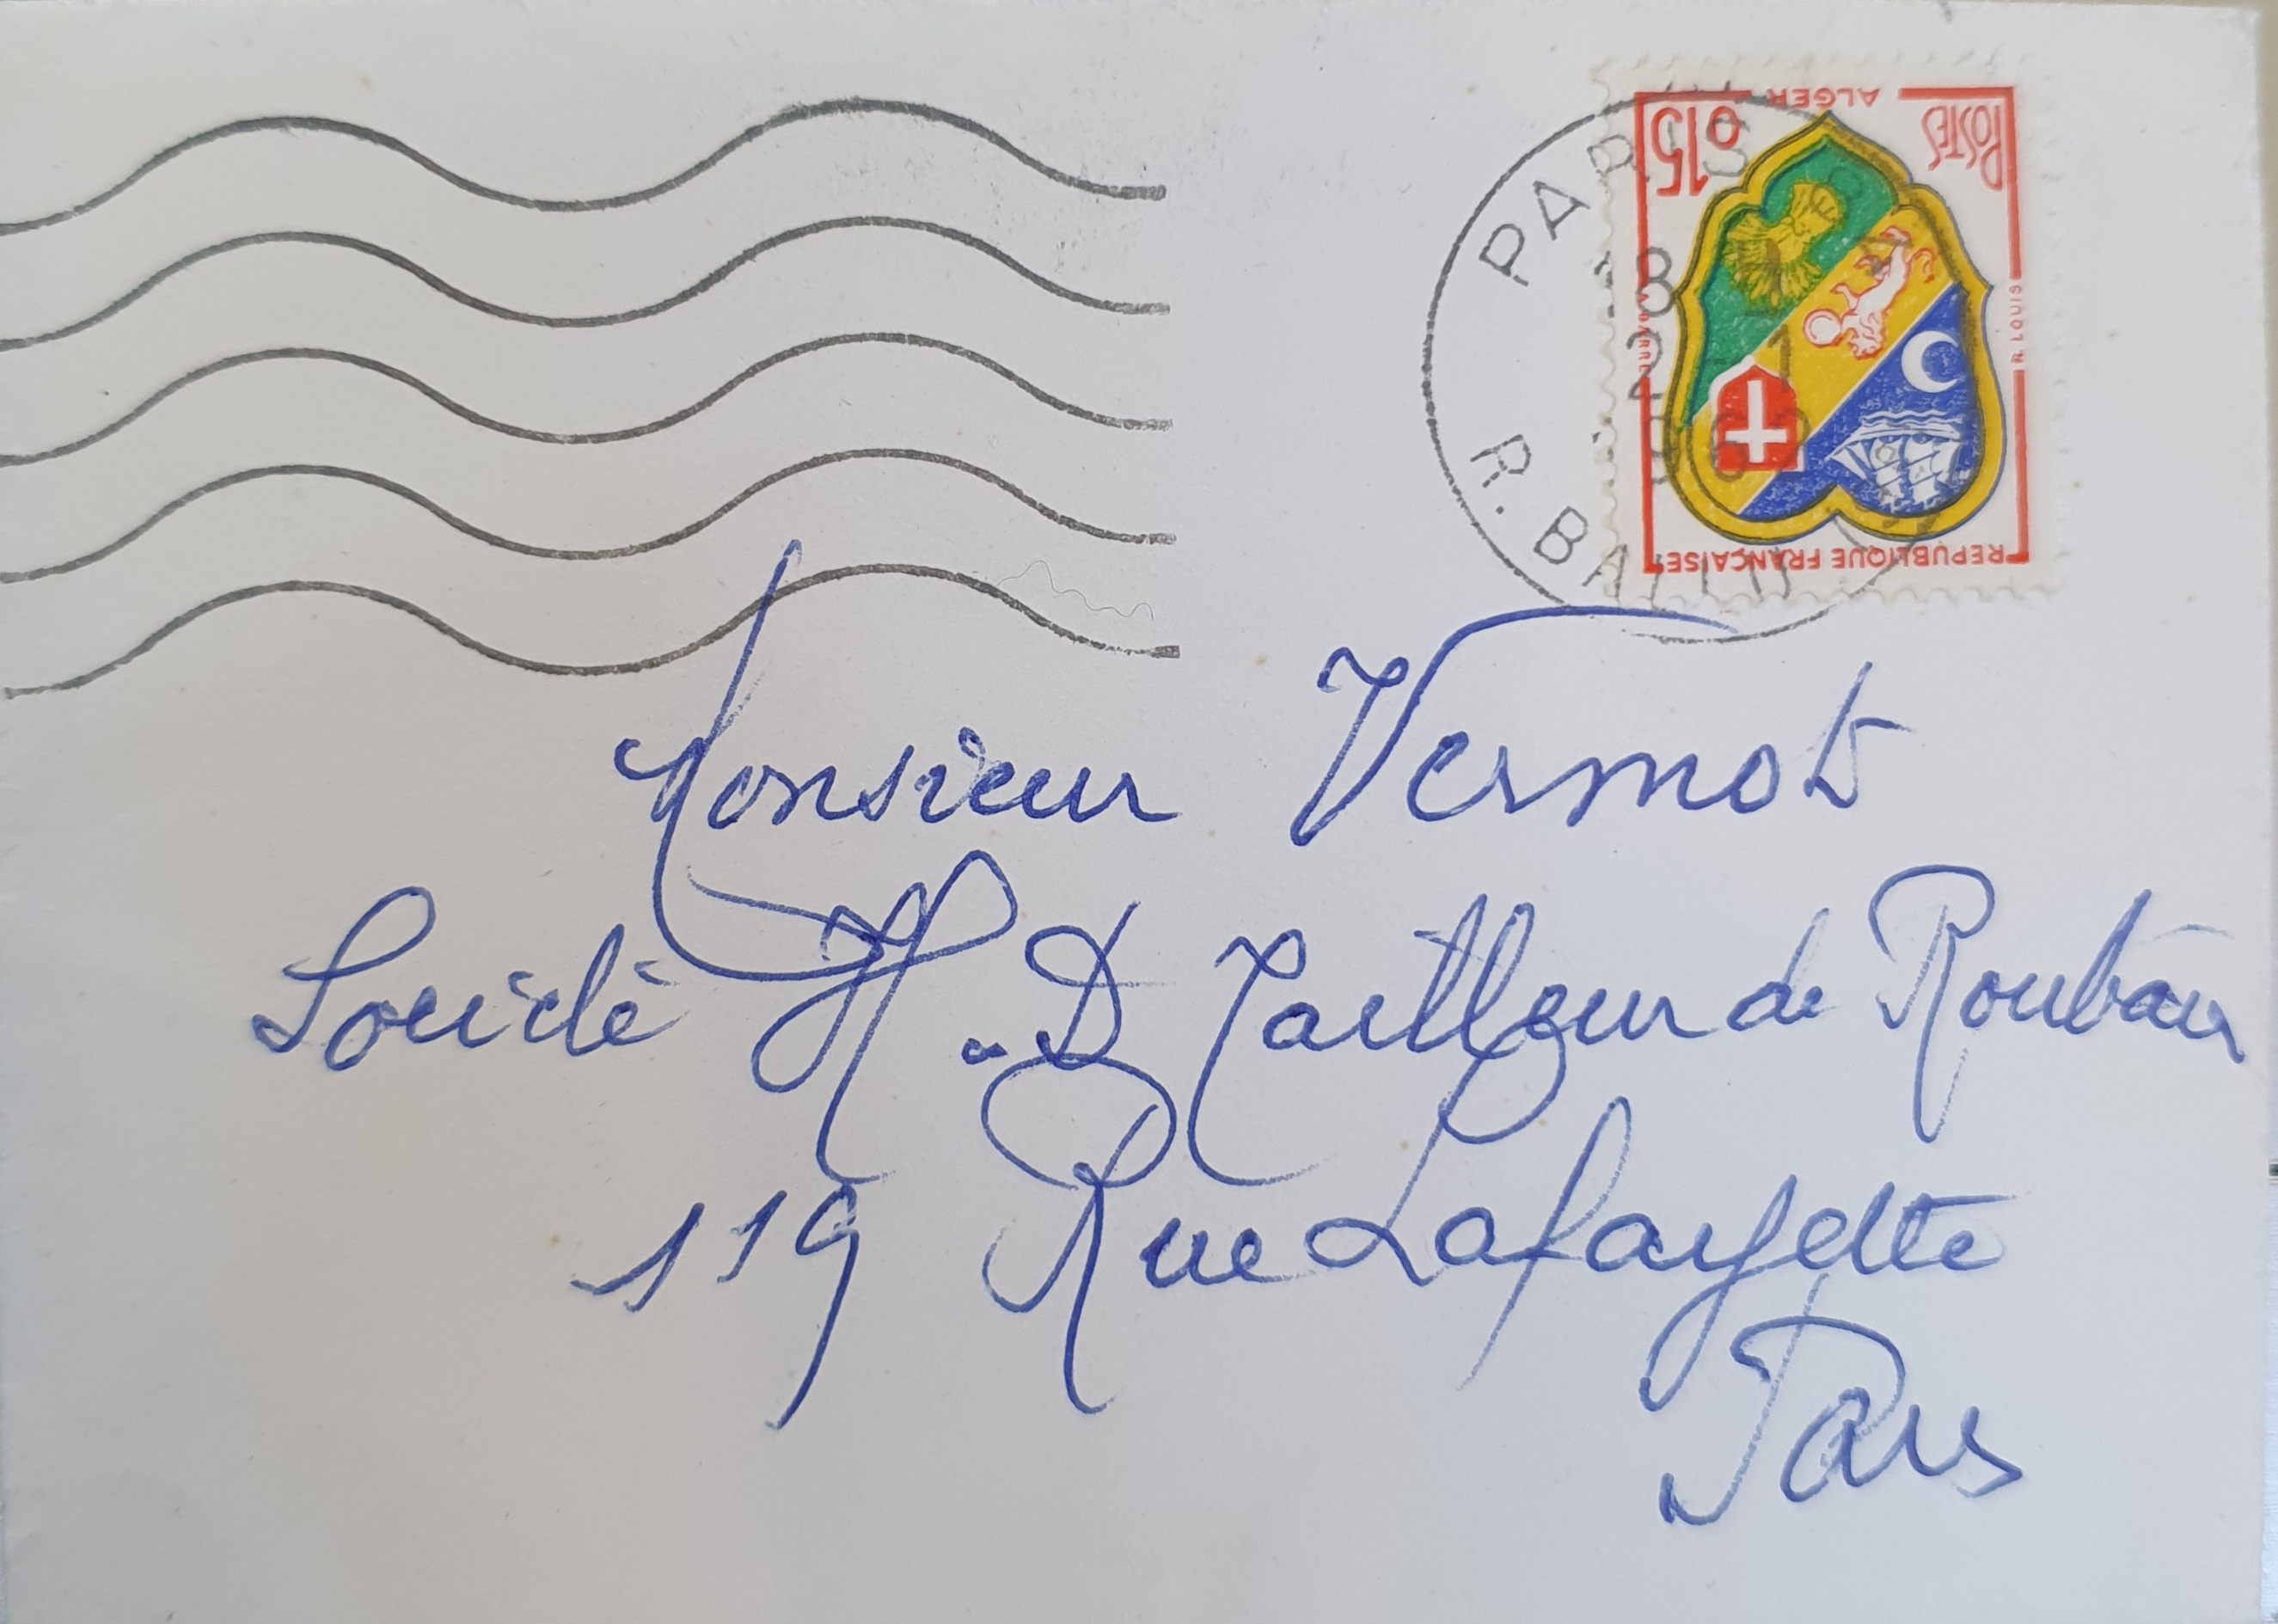 PARIS
R. BALLU
ALGER
0.15
POSTES
R. LOUIS
REPUBLIQUE FRANÇAISE
Monsieur Vermot
Société H. D Tailleur de Roubaix
119 Rue Lafayette
Paris